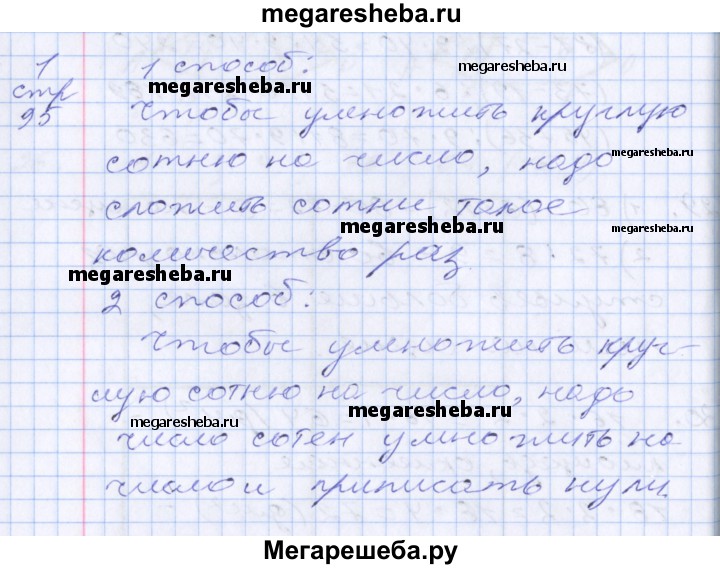 megaresheba.ru
1 1 способ:
стр megaresheba.ru megaresheba.ru
95 Чтобы умножить круглую
сотню на число, надо
megaresheba.ru
сложить сотни такое
megaresheba.ru megaresheba.ru
количество раз
megaresheba.ru
2 способ:
Чтобы умножить круг-
лую сотню на число, надо
megaresheba.ru megaresheba.ru megaresheba.ru
число сотен умножить на
число и приписать нули.
Мегарешеба.ру